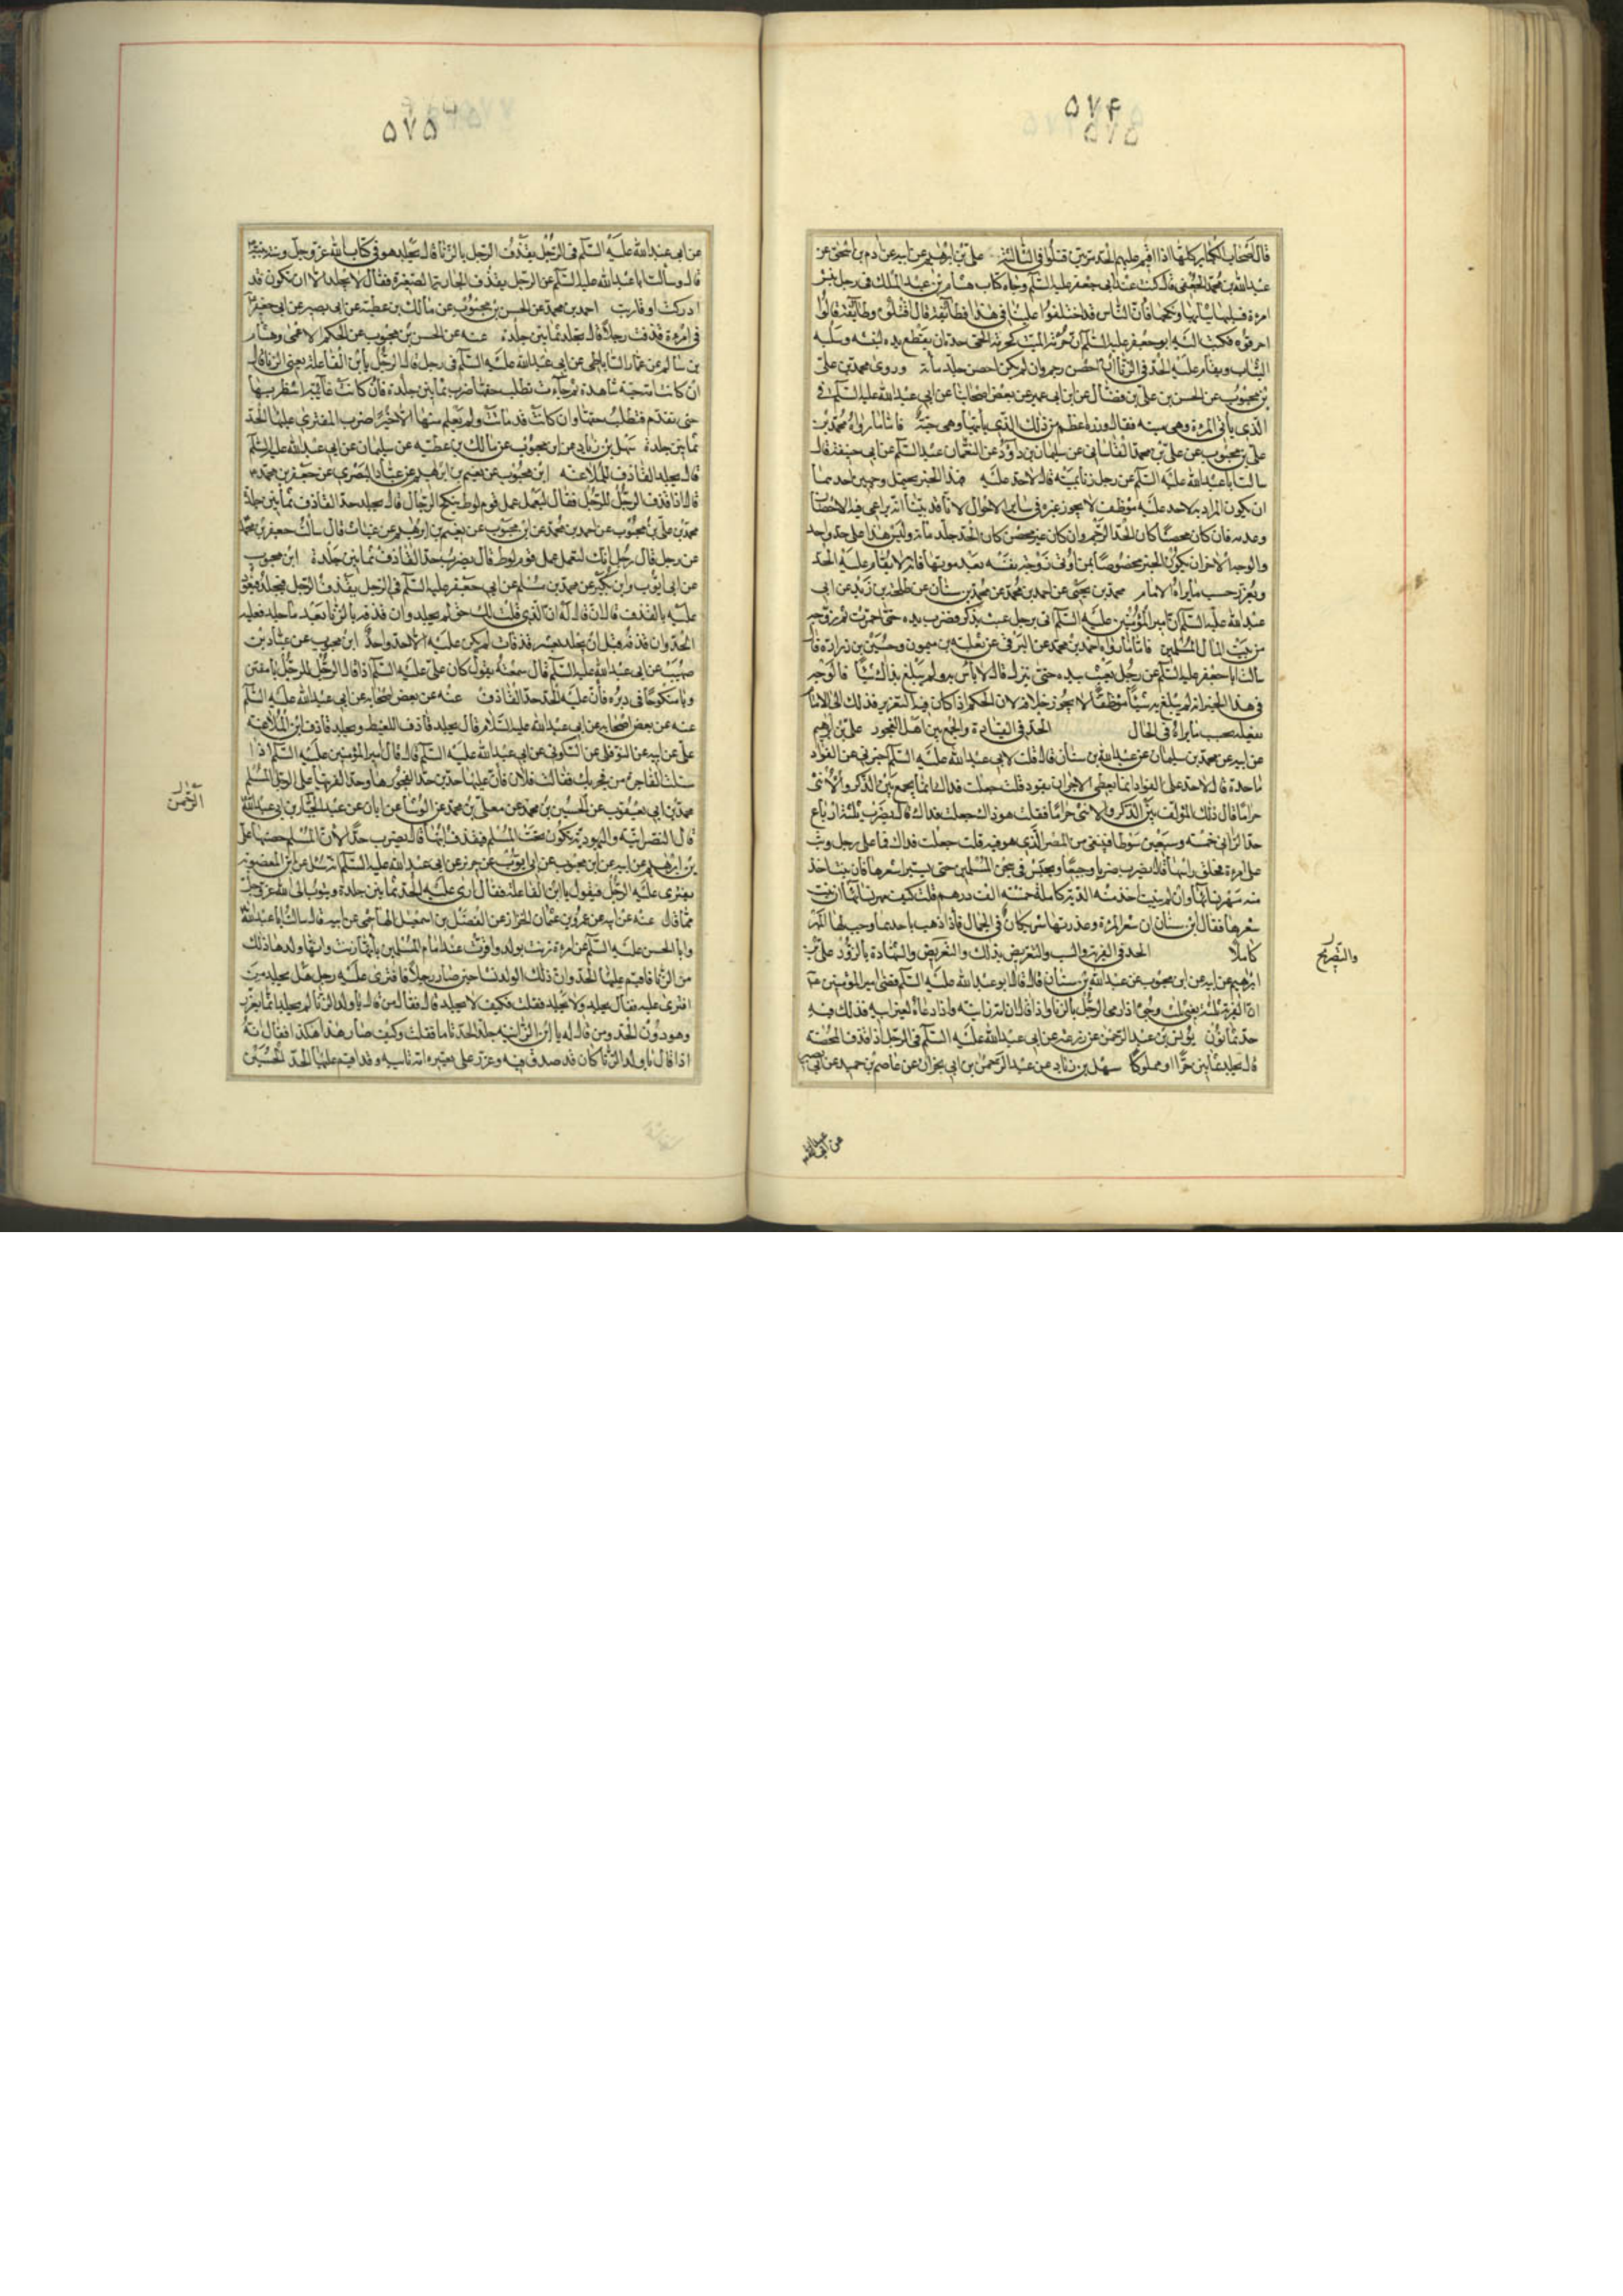 ۵۷۴
۵۷۵
قال اصحاب الكبائر كلها اذا اقيم عليهم الحد مرتين قتلوا فى الثالثة علىّ بن ابرهيم عن ابيه عن ادم بن اسحق عن
عبدالله بن محمد الجعفى قال كنت عند ابى جعفر عليه السلم وجاءه كتاب هشام بن عبد الملك فى رجل نبش
امرءة فسلبها ثيابها ونكحها فان الناس قد اختلفوا علينا فى هذا فطائفة قالوا اقتلوه وطائفة قالوا
احرقوه فكتب اليه ابو جعفر عليه السلم ان حرمة الميت كحرمة الحى حده ان يقطع يده لنبشه وسلبه
الثياب ويقام عليه الحد فى الزنا ان احصن رجم وان لم يكن احصن جلد مأة وروى محمد بن على
بن محبوب عن الحسن بن على بن فضال عن ابن ابى عمير عن بعض اصحابنا عن ابى عبد الله عليه السلم فى
الذى يأتى المرءة وهى ميتة فقال وزره اعظم من ذلك الذى يأتيها وهى حية فاما ما رواه محمد بن
على بن محبوب عن على بن محمد القاسانى عن سليمان بن داود عن النعمان عبد السلم عن ابى حنيفة قال
سالت ابا عبد الله عليه السلم عن رجل زنا بميتة قال لا حد عليه فهذا الخبر يحتمل وجهين احدهما
ان يكون المراد به لا حد عليه موظف لا يجوز غيره فى ساير الاحوال لانا قد بينا انه يراعى فيه الاحصان
وعدمه فان كان محصنا كان الحد الرجم وان كان غير محصن كان الحد جلد مأة وليس هذا على حد واحد
والوجه الاخر ان يكون الخبر مخصوصا بمن اتى زوجة نفسه بعد موتها فانه لا يقام عليه الحد
ويعزر حسب ما يراه الامام محمد بن يحيى عن احمد بن محمد عن محمد بن سنان عن طلحة بن زيد عن ابى
عبد الله عليه السلم ان امير المؤمنين عليه السلم اتى برجل عبث بذكره فضرب يده حتى احمرت ثم زوجه
من بيت المال المسلمين فاما ما رواه احمد بن محمد عن البرقى عن ثعلبه بن ميمون وحسين بن زرارة قال
سالت ابا جعفر عليه السلم عن رجل يعبث بيده حتى ينزل قال لا بأس به ولم يبلغ بذاك شيئا فالوجه
فى هذا الخبر انه لم يبلغ به شيئا موظفا لا يجوز خلافه لان الحكم اذا كان فيه التعزير فذلك الى الامام
يفعله بحسب ما يراه فى الحال الحد فى القيادة والجمع بين اهل الفجور على بن ابرهيم
عن ابيه عن محمد بن سليمان عن عبد الله بن سنان قال قلت لابى عبد الله عليه السلم اخبرنى عن القواد
ما حده قال لا حد على القواد انما يعطى الاجر ان يقود قلت جعلت فداك انما يجمع بين الذكر والانثى
حراما قال ذلك المؤلف بين الذكر والانثى حراما فقلت هو ذاك جعلت فداك قال يضرب ثلثة ارباع
حد الزانى خمسه وسبعين سوطا وينفى من المصر الذى هو فيه قلت جعلت فداك فما على رجل وثب
على امرءة فحلق راسها قال يضرب ضربا وجيعا ويحبس فى سجن المسلمين حتى يستبرا شعرها فان نبت اخذ
منه مهر نسائها وان لم ينبت اخذت منه الدية كاملة خمسة الف درهم قلت كيف مهر نسائها ان نبت
شعرها فقال ابن سنان ان شعر المرءة وعذرتها شريكان فى الجمال فاذا ذهب باحدهما وجب لها المهر
كاملا الحد فى الفرية والسب والتعريض بذلك والتعريض والشهادة بالزور على بن
والتصريح
ابرهيم عن ابيه عن ابن محبوب عن عبد الله بن سنان قال قال ابو عبد الله عليه السلم قضى امير المؤمنين ع
ان الفرية ثلثة يعنى ثلث وجوه اذا رمى الرجل بالزنا واذا قال ان امه زانية واذا دعاه لغير ابيه فذلك فيه
حد ثمانون يونس بن عبد الرحمن عن زرعة عن ابى عبد الله عليه السلم فى الرجل اذا قذف المحصنة
قال يجلد ثمانين حرا او مملوكا سهل بن زياد عن عبد الرحمن بن ابى نجران عن عاصم بن حميد عن ابى بصير
عن ابى عبدالله
۵۷۵
عن ابى عبد الله عليه السلم فى الرجل يقذف الرجل بالزنا قال يجلد هو فى كتاب الله عز وجل وسنة نبيه
قال وسألت ابا عبد الله عليه السلم عن الرجل يقذف الجارية الصغيرة فقال لا يجلد الا ان تكون قد
ادركت او قاربت احمد بن محمد عن الحسن بن محبوب عن مالك بن عطية عن ابى بصير عن ابى جعفر ع
فى امرءة قذفت رجلا قال تجلد ثمانين جلدة عنه عن الحسن بن محبوب عن الحكم الاعمى وهشام
بن سالم عن عمار الساباطى عن ابى عبد الله عليه السلم فى رجل قال الرجل يا بن الفاعلة يعنى الزنا قال
ان كانت امه حية شاهدة ثم جاءت تطلب حقها ضرب ثمانين جلدة فان كانت غائبة انتظر بها
حتى تقدم فتطلب حقها وان كانت قد ماتت ولم يعلم منها الا خيرا ضرب المفترى عليها الحد
ثمانين جلدة سهل بن زياد عن ابن محبوب عن مالك بن عطيه عن سليمان عن ابى عبد الله عليه السلم
قال يجلد القاذف للملاعنة ابن محبوب عن نعيم بن ابرهيم عن عباد البصرى عن جعفر بن محمد ع
قال اذا قذف الرجل الرجل فقال ليعمل عمل قوم لوط ينكح الرجال قال يجلد حد القاذف ثمانين جلدة
محمد بن على بن محبوب عن احمد بن محمد عن ابن محبوب عن نعيم بن ابرهيم عن غياث قال سالت جعفر بن محمد
عن رجل قال رجل انك لتعمل عمل قوم لوط قال يضرب حد القاذف ثمانين جلدة ابن محبوب
عن ابى ايوب وابن بكير عن محمد بن مسلم عن ابى جعفر عليه السلم فى الرجل يقذف الرجل فيجلد فيعود
عليه بالقذف قال ان قال له ان الذى قلت لك حق لم يجلد وان قذفه بالزنا بعد ما جلد فعليه
الحد وان قذفه قبل ان يجلد بعشر قذفات لم يكن عليه الا حد واحد ابن محبوب عن عباد بن
صهيب عن ابى عبد الله عليه السلم قال سمعته يقول كان على عليه السلم اذا قال الرجل للرجل يا مفتى
ويا منكوحا فى دبره فان عليه الحد حد القاذف عنه عن بعض اصحابه عن ابى عبد الله عليه السلم
عنه عن بعض اصحابه عن ابى عبد الله عليه السلام قال يجلد قاذف اللقيط ويجلد قاذف ابن الملاعنه
على عن ابيه عن النوفلى عن السكونى عن ابى عبد الله عليه السلم قال قال امير المؤمنين عليه السلم اذا
سئلت الفاجرة من فجر بك فقالت فلان فان عليها حدين حد الفجورها وحد الفريتها على الرجل المسلم
الرحمن
محمد بن ابى يعقوب عن الحسين بن محمد عن معلى بن محمد عن الوشا عن ابان عن عبد الجبار بن ابى عبد الله
قال النصرانية واليهودية تكون تحت المسلم فيقذف ابنها قال يضرب حدا لان المسلم حصنها على
بن ابرهيم عن ابيه عن ابن محبوب عن ابى ايوب عن حريز عن ابى عبد الله عليه السلم انه سئل عن ابن المغصوبة
يفترى عليه الرجل فيقول يا ابن الفاعلة فقال ارى عليه الحد ثمانين جلدة ويتوب الى الله عز وجل
مما قال عنه عن ابيه عن عمرو بن عثمان الخزاز عن الفضل بن اسمعيل الهاشمى عن ابيه قال سالت ابا عبد الله
وابا الحسن عليه السلم عن امرءة زنيت بولد واقرت عند امام المسلمين بانها زنت وانها ولدها ذلك
من الزنا فاقيم عليها الحد وان ذلك الولد نشا حتى صار رجلا فافترى عليه رجل هل يجلد من
افترى عليه فقال يجلد ولا يجلد فقلت فكيف لا يجلد قال فقال من قال يا ولد الزنا لم يجلد انما يعزر
وهو دون الحد ومن قال له يا ابن الزانية جلد الحد تاما فقلت وكيف صار هذا هكذا فقال انه
اذا قال يا ولد الزنا كان قد صدق فيه وعزر على تعييره امه ثانيه وقد اقيم عليها الحد